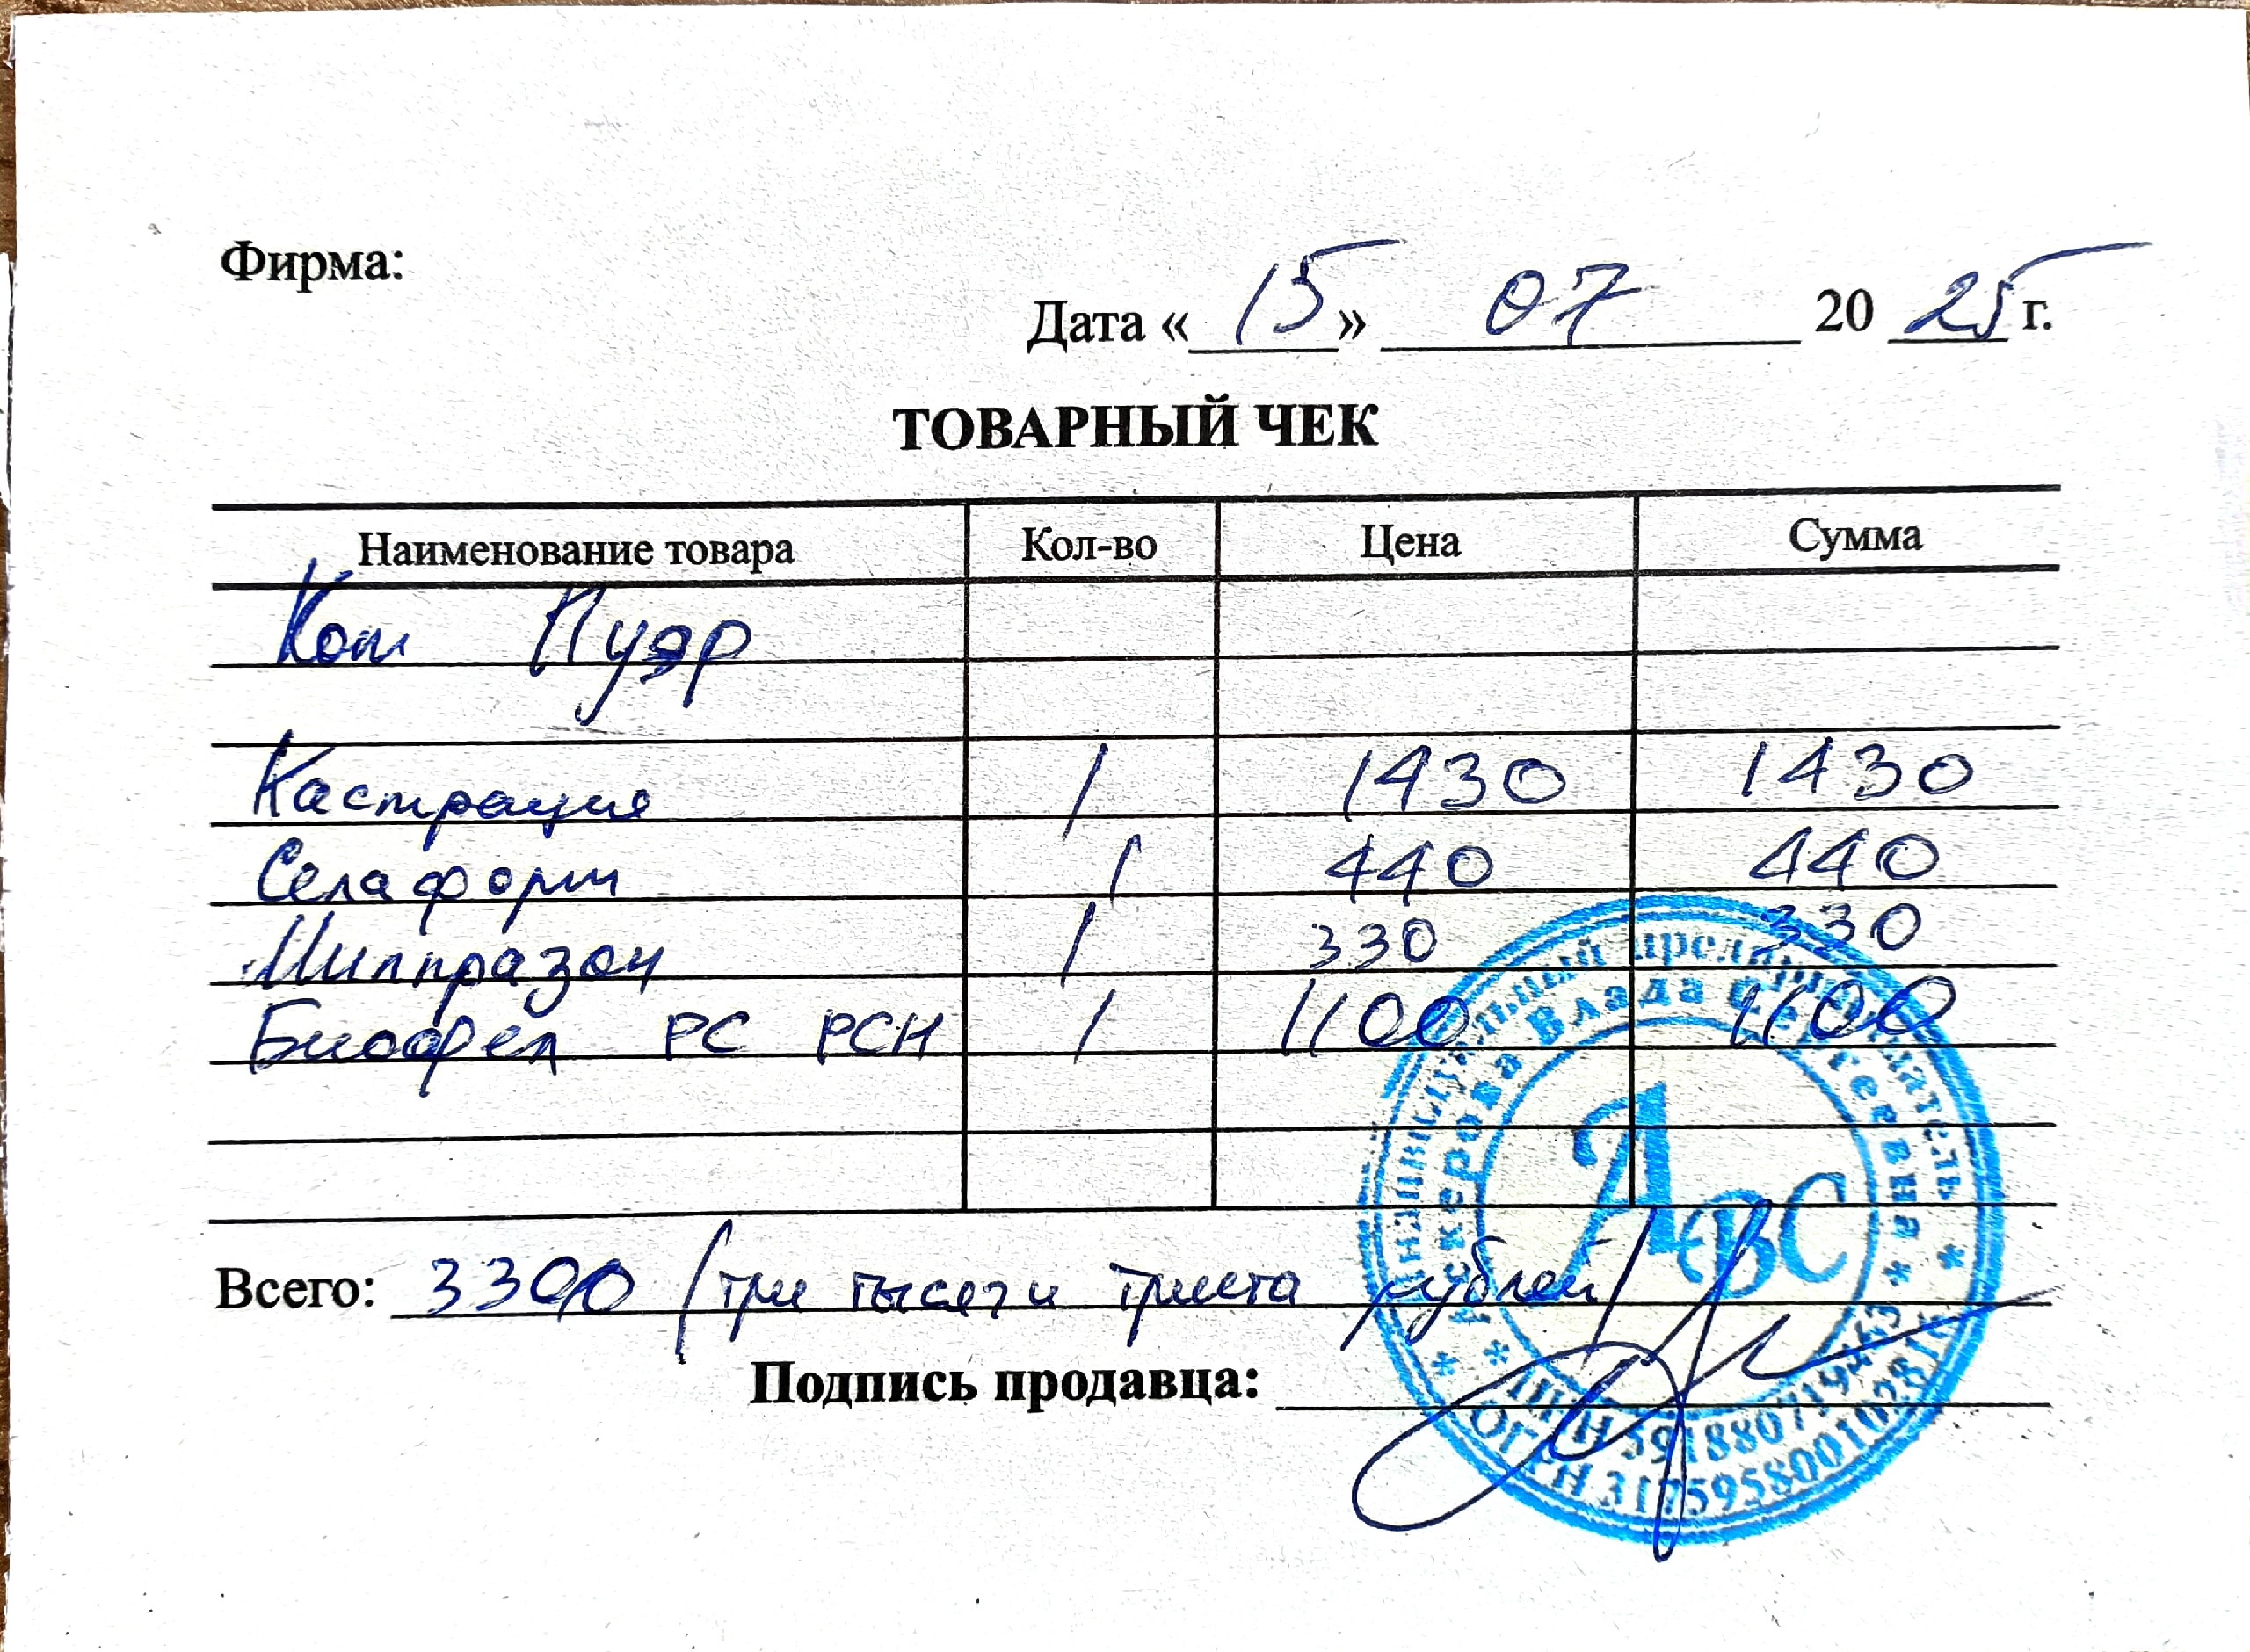 Фирма:
Дата « 15 » 07 20 25 г.
ТОВАРНЫЙ ЧЕК
Наименование товара Кол-во Цена Сумма
Кот Пуэр
Кастрация 1 1430 1430
Селафорт 1 440 440
Милпразон 1 330 330
Биофел PC PCH 1 1100 1100
Всего: 3300 (три тысячи триста рублей)
Подпись продавца:
Индивидуальный предприниматель
Аскерова Влада Сергеевна
АВС
ИНН
ОГРН